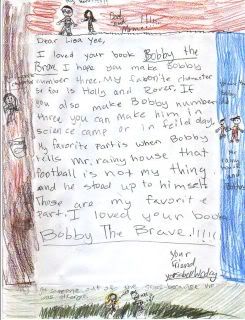 Dear Lisa Yee,
I loved your book Bobby the
Brave I hope you make Bobby
number three. My favorite character
so far is Holly and Rover. If
you also make Bobby number
three you can make him in
science camp or in feild day.
My favorite part is when Bobby
tells mr. rainy house that
football is not my thing
and he stood up to himself.
Those are my favorite
part. I loved your book
Bobby The Brave.!!!!!
your
friend